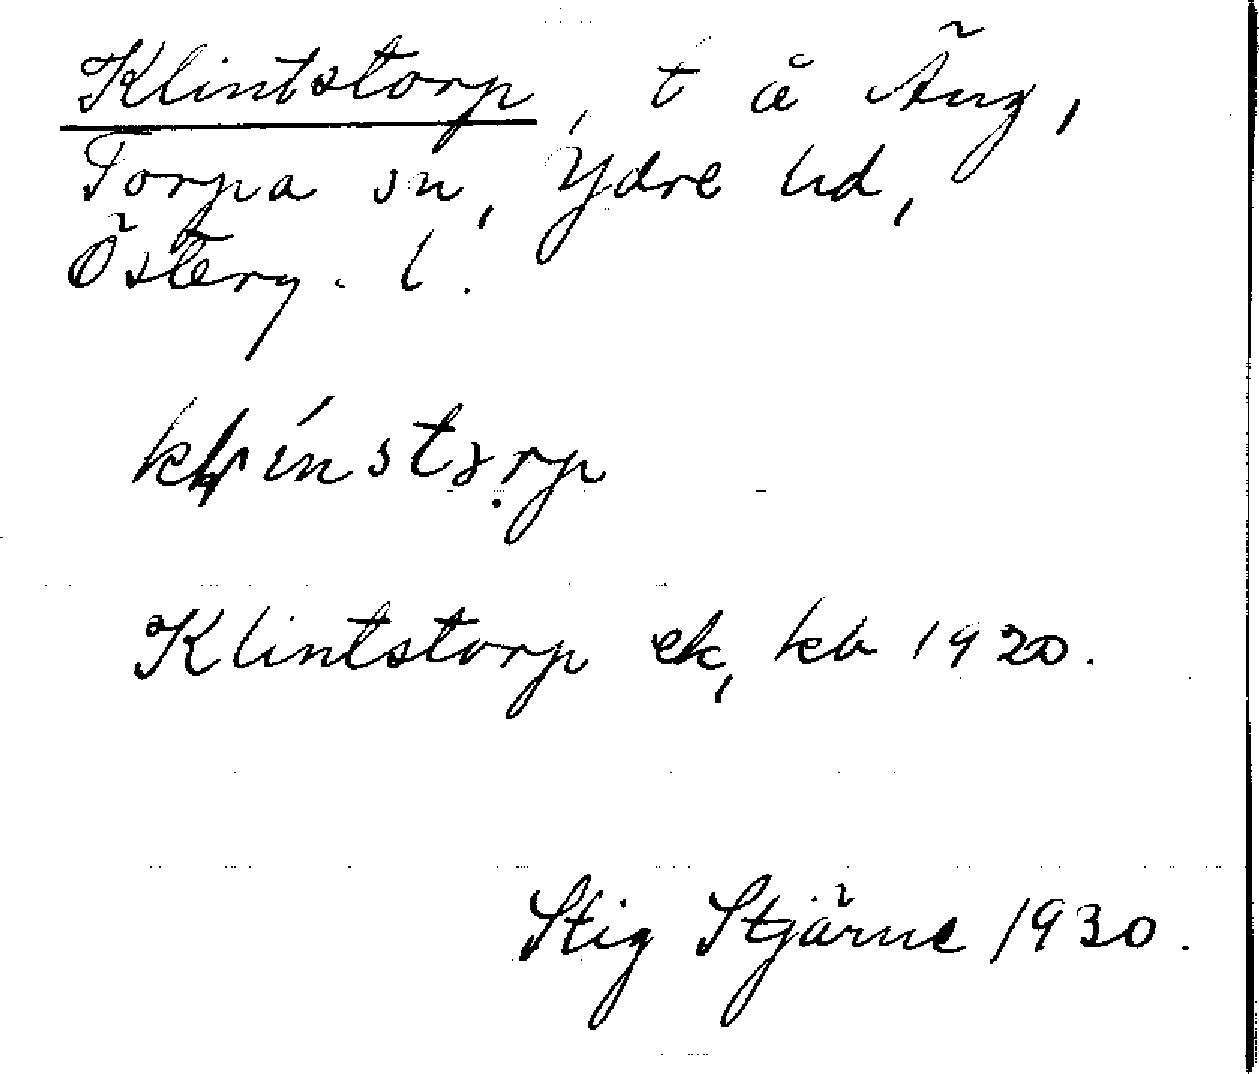 Klintstorp, t å Äng,
Torpa sn, Ydre hd,
Österg. l.
Klintstorp ek, kb 1920.
Stig Stjärne 1930.